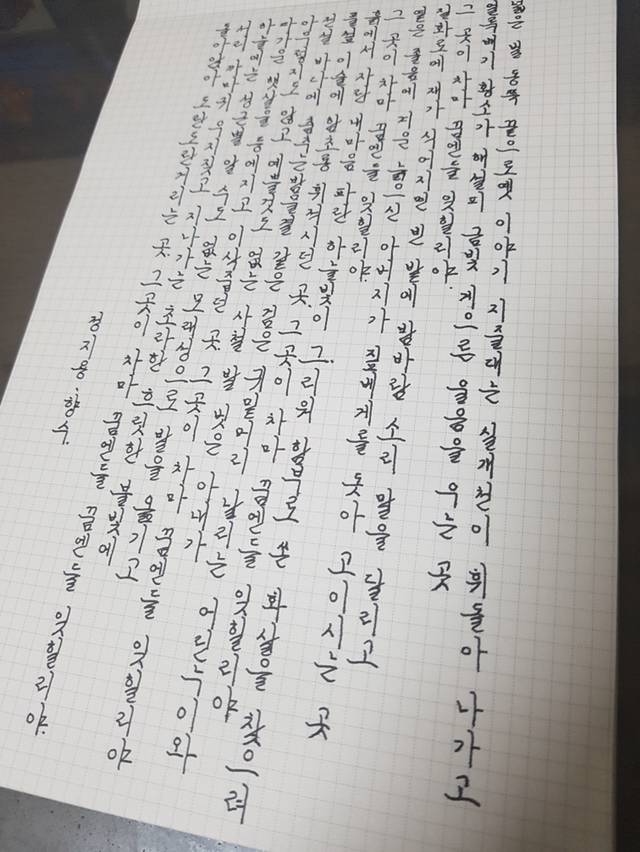 넓은 벌 동쪽 끝으로 옛 이야기 지줄대는 실개천이 휘돌아 나가고
얼룩배기 황소가 해설피 금빛 게으름 울음을 우는 곳
그 곳이 차마 꿈엔들 잊힐리야.
질화로에 재가 식어지면 빈 밭에 밤바람 소리 말을 달리고
엷은 졸음에 겨운 늙으신 아버지가 짚베게를 돗아 고이시는 곳
그 곳이 차마 꿈엔들 잊힐리야.
흙에서 자란 내마음 파란 하늘빛이 그리워 함부로 쏜 화살을 찾으려
풀섶 이슬에 함초롬 휘적시던 곳. 그 곳이 차마 꿈엔들 잊힐리야.
전설 바다에 춤추는 밤물결 같은 검은 귀밑머리 날리는 어린누이와
아무렇지도 않고 예쁠것도 없는 사철 발 벗은 아내가
따가운 햇살을 등에지고 이삭줍던 곳 그 곳이 차마 꿈엔들 잊힐리야
하늘에는 성근별 알 수도 없는 모래성으로 발을 옮기고
서리 까마귀 우지짖고 지나가는 초라한 흐릿한 불빛에
돌아앉아 도란도란거리는 곳. 그곳이 차마 꿈엔들 잊힐리야.
정지용.향수.